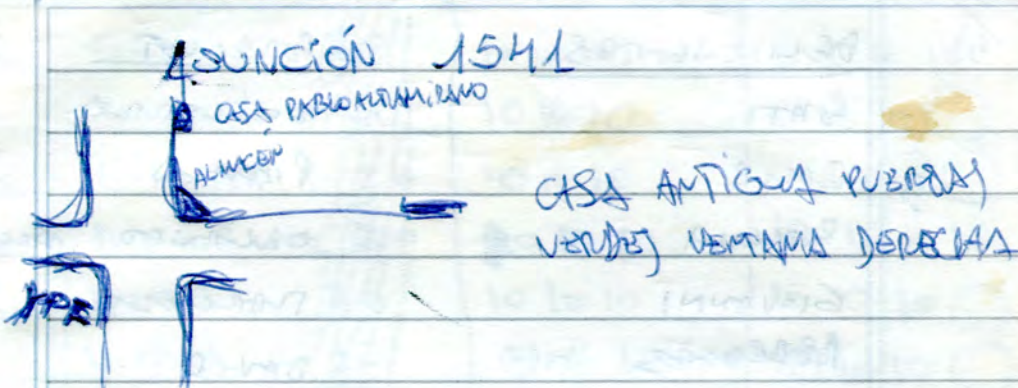 ASUNCIÓN 1541
CASA PABLO ALTAMIRANO
ALMACÉN
CASA ANTIGUA PUERTAS
VERDES VENTANA DERECHA